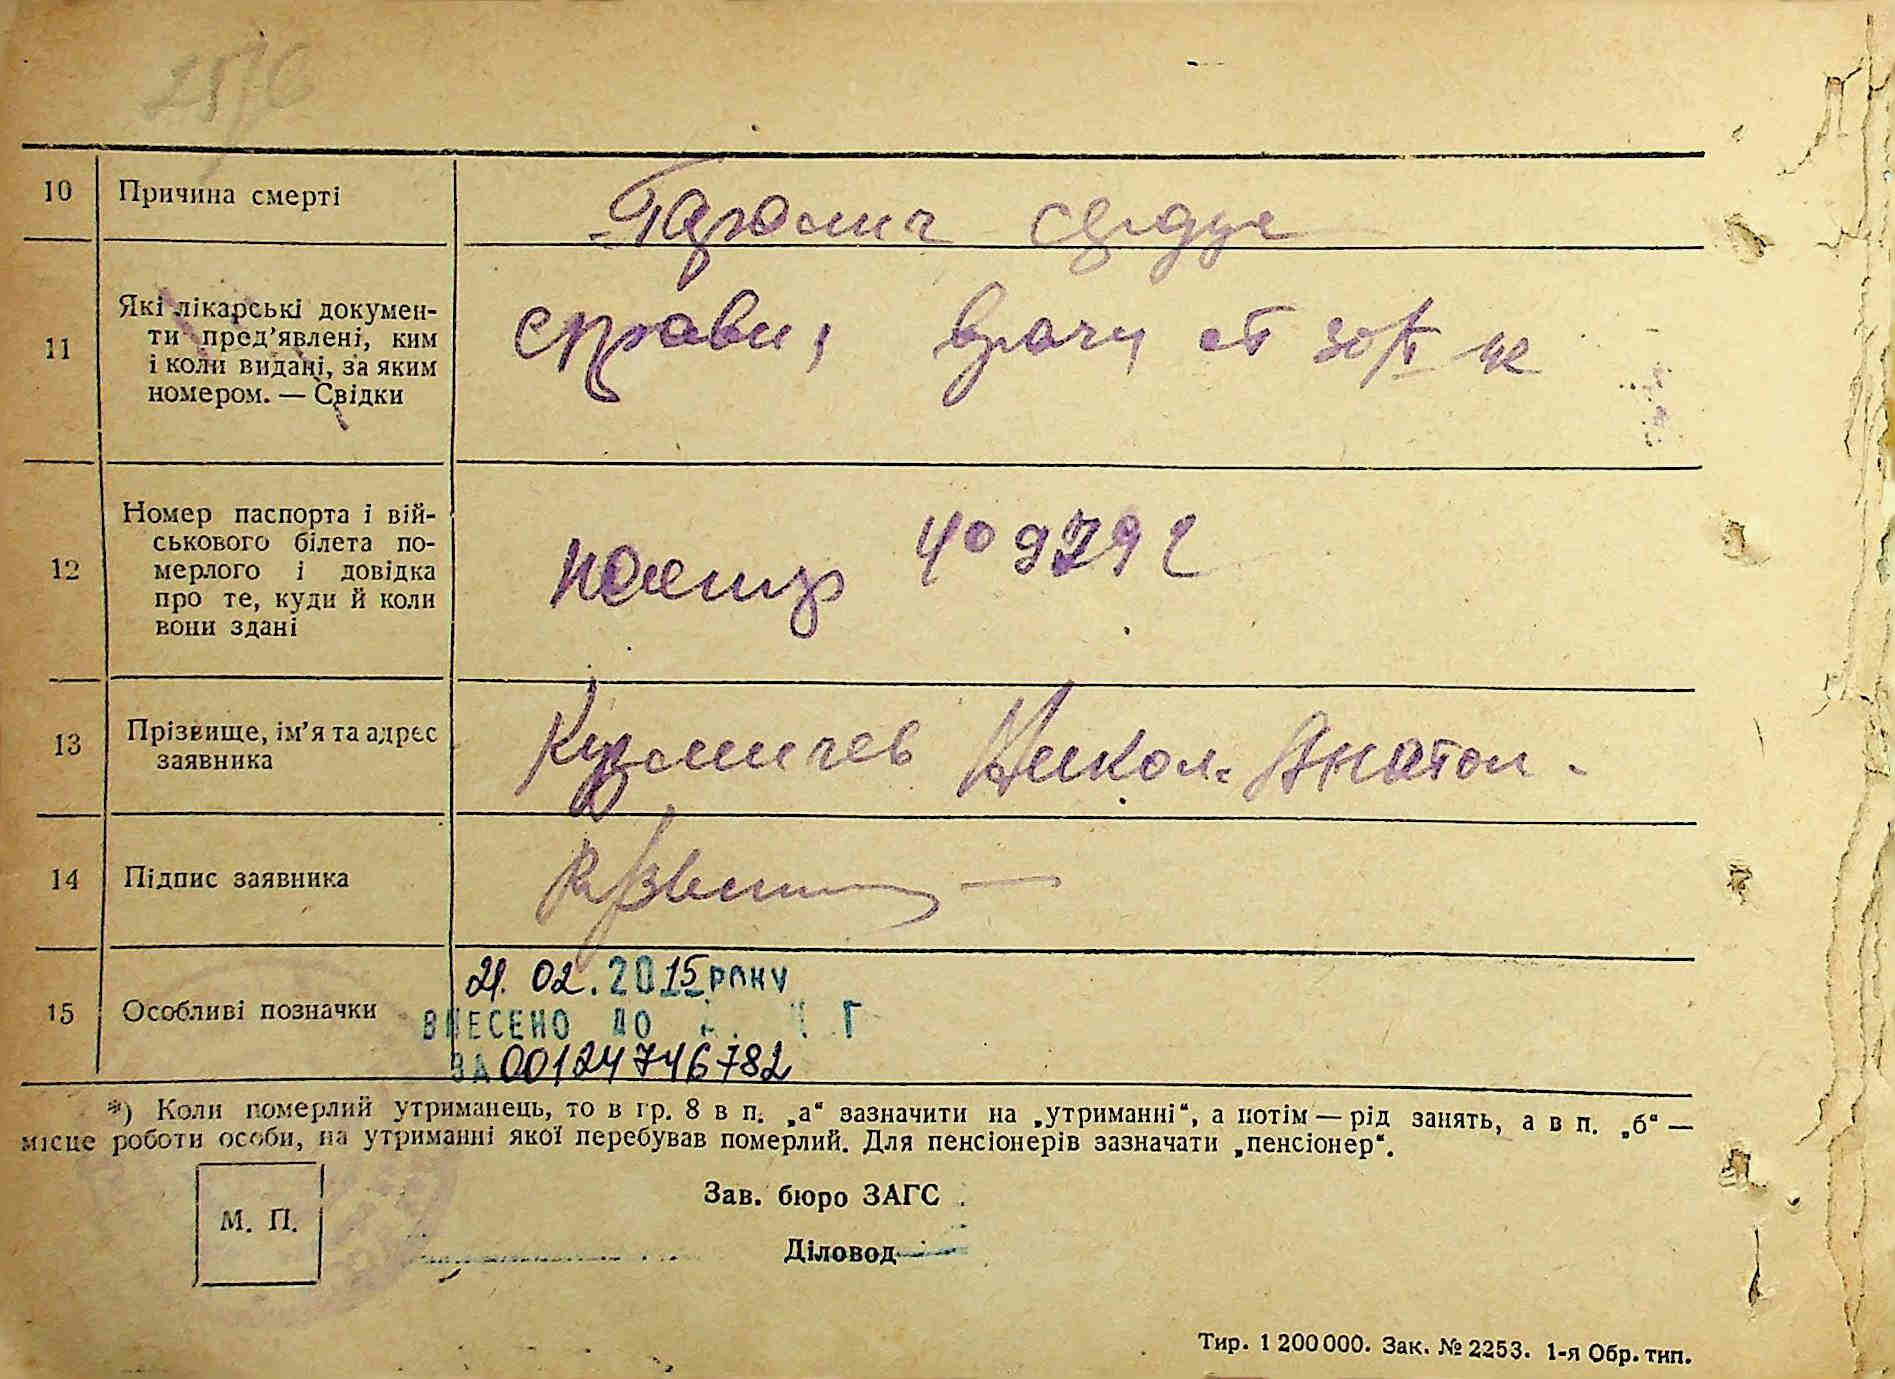 10 Причина смерті Паралич сердце
11 Які лікарські докумен-
ти пред'явлені, ким
і коли видані, за яким
номером. — Свідки
справи, врачу от 30/V
12 Номер паспорта і вій-
ськового білета по-
мерлого і довідка
про те, куди й коли
вони здані
409792
13 Прізвище, ім'я та адрес
заявника
Кузьмичев Никол. Анатол.
14 Підпис заявника
15 Особливі позначки
21.02.2015 року
ВНЕСЕНО ДО Г
ЗА 00124746782
*) Коли померлий утриманець, то в гр. 8 в п. „а“ зазначити на „утриманні“, а потім — рід занять, а в п. „б“ —
місце роботи особи, на утриманні якої перебував померлий. Для пенсіонерів зазначати „пенсіонер“.
Зав. бюро ЗАГС
М. П.
Діловод
Тир. 1 200 000. Зак. № 2253. 1-я Обр. тип.